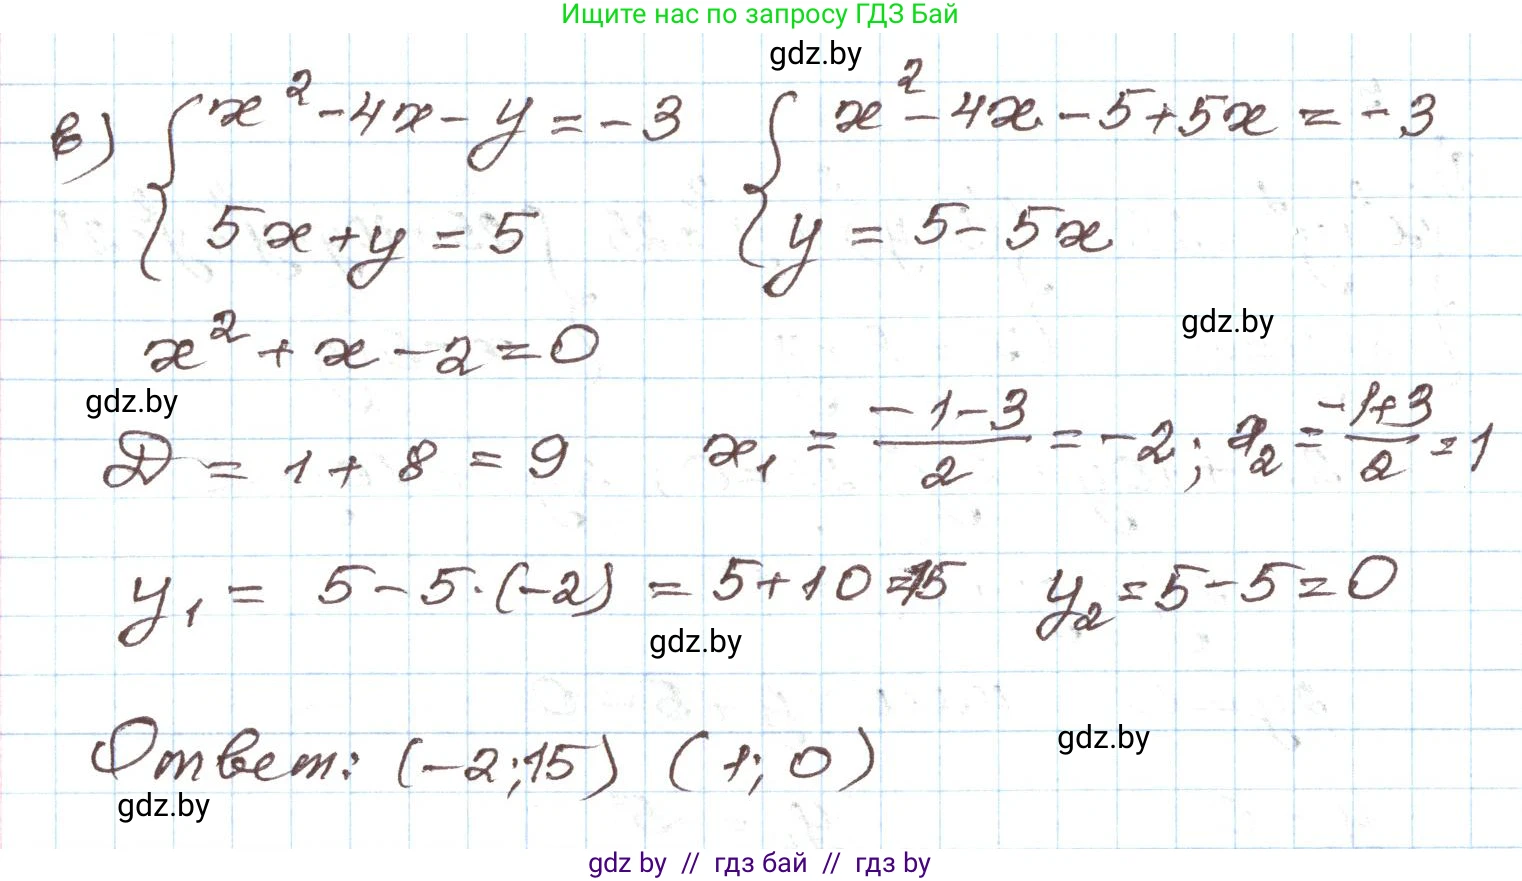 Ищите нас по запросу ГДЗ Бай
gdz.by
в) { x² - 4x - y = -3 { x² - 4x - 5 + 5x = -3
5x + y = 5 y = 5 - 5x
gdz.by
x² + x - 2 = 0
gdz.by
D = 1 + 8 = 9 x₁ = (-1-3)/2 = -2; x₂ = (-1+3)/2 = 1
y₁ = 5 - 5·(-2) = 5 + 10 = 15 y₂ = 5 - 5 = 0
gdz.by
Ответ: (-2; 15) (1; 0)
gdz.by
gdz.by
gdz by // гдз бай // гдз by